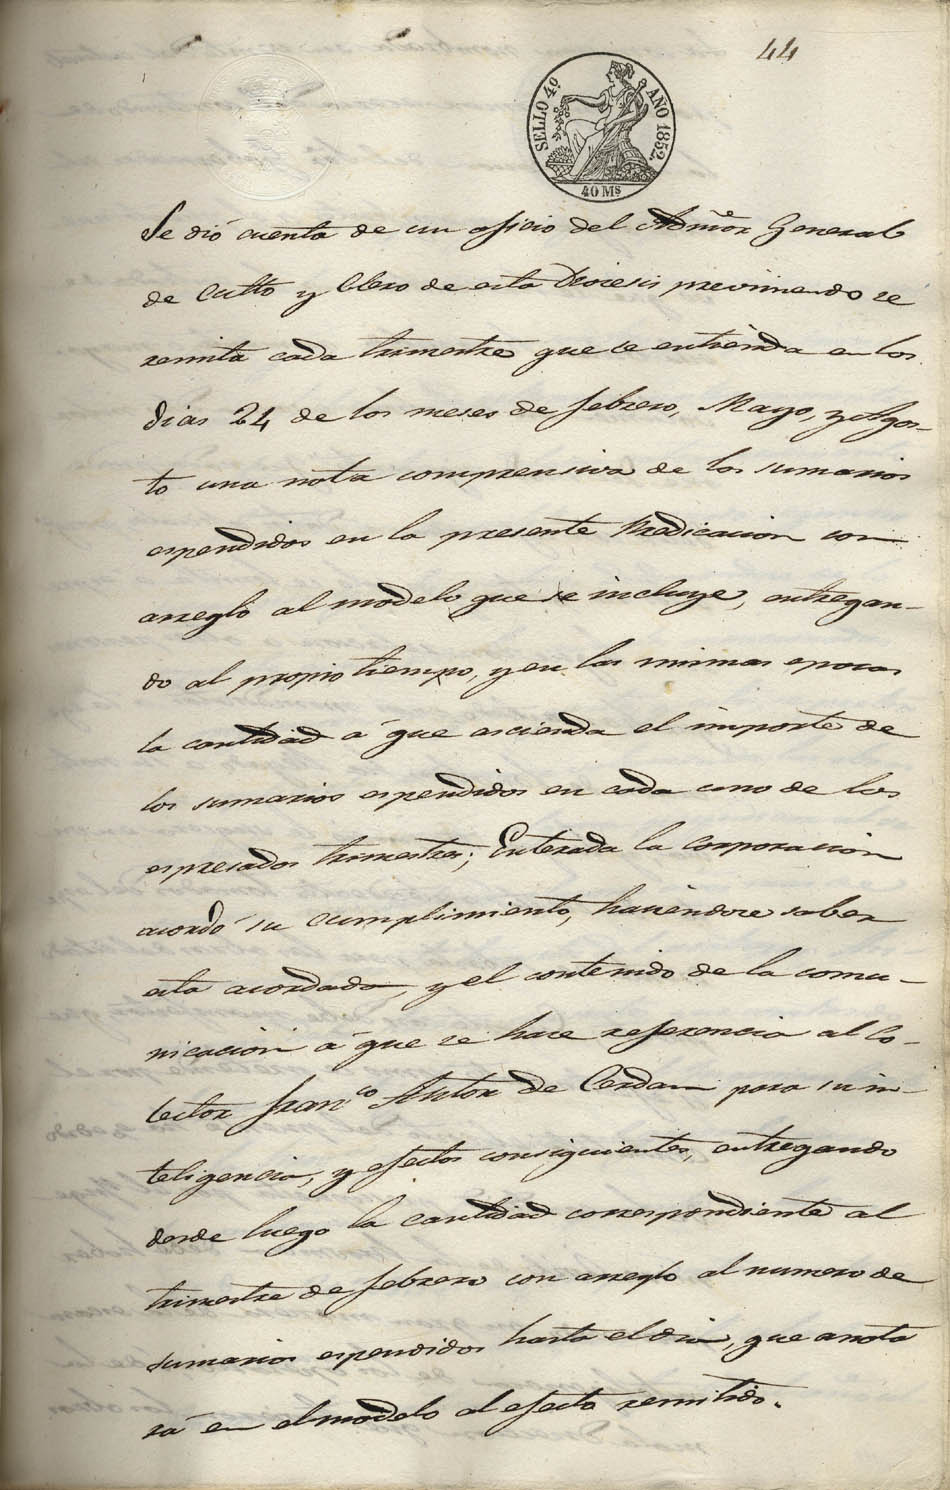 44
SELLO 4º AÑO 1852.
40 Ms
Se dió cuenta de un oficio del Admõr General
de Culto y Clero de esta Diocesis previniendo se
remita cada trimestre que se entienda en los
dias 24 de los meses de febrero, Mayo, y Agos-
to una nota comprensiva de los sumarios
espendidos en la presente Predicacion con
arreglo al modelo que se incluye, entregan-
do al propio tiempo, y en las mismas epocas
la cantidad á que ascienda el importe de
los sumarios espendidos en cada uno de los
espresados trimestres; Enterada la corporacion
acordó su cumplimiento, haciendose saber
esta acordada, y el contenido de la comu-
nicacion á que se hace referencia al Co-
lector Franco Antor de Cerdan para su in-
teligencia, y efectos consiguientes, entregando
desde luego la cantidad correspondiente al
trimestre de febrero con arreglo al numero de
sumarios espendidos hasta el dia, que anota
rá en el modelo al efecto remitido.